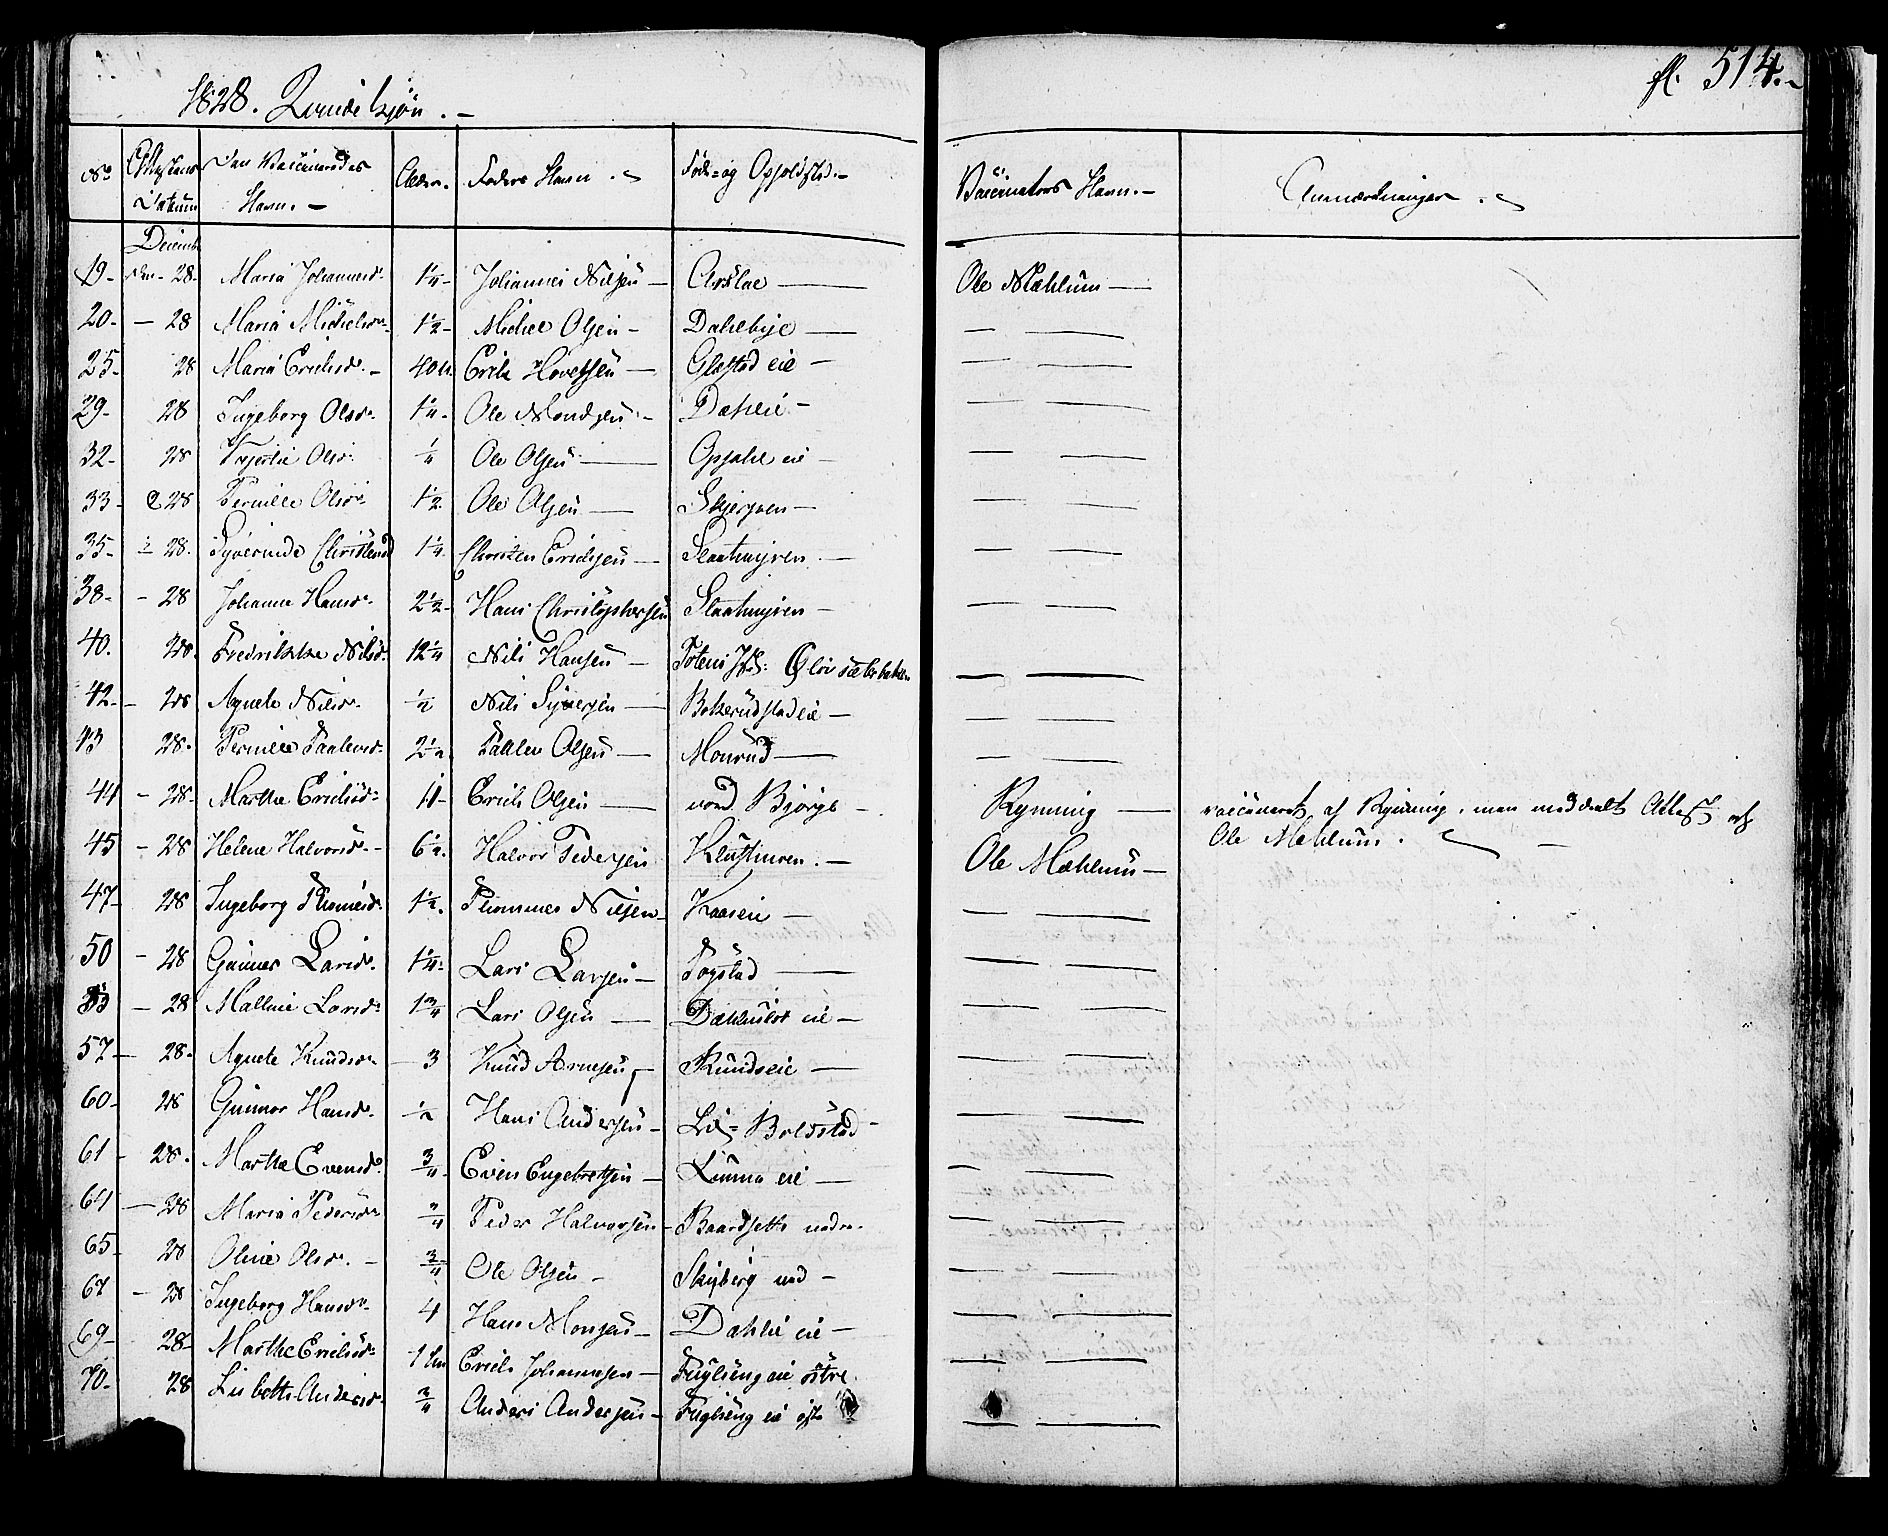 1828. Qvindekjøn. -
fl. 514. -
No
Attestens Datum
Den Vaccineredes Havn. -
Alder.
Faders Navn. -
Føde- og Opholdsted. -
Vaccinators Navn. -
Anmærkninger. -
Decembr
19 - den - 28 - Maria Johannesdr 1 1/4 - Johannes Nilsen - Ole Mæhlum -
20 - - 28 Maria Michelsdr 1 1/2 - Michel Olsen - Dahlbye - — —
25 - 28 Maria Erichsdr - Erik - Gløstad eie - — —
29 - 28 Ingeborg Olsdr 1 1/4 - Ole - Dahleie - — —
32 - 28 Olsdr 1/4 Ole Olsen - Opsahl eie - — —
33 - 28 Pernille Olsdr 1 1/2 Ole Olsen - Skjerpen - — —
35 - 28. Syverinde Christensd 1 1/4 Christen Erichsen - Slaatmyren - — —
38 - - 28 Johanne Hansdr 2 1/2 - Hans Christophersen Slaatmyren - — —
40. 28. Fredrikke Nilsdr 12 1/4 Nils Hansen - Totens — —
42 - - 28 Agnete Nilsdr 1/2 Nils Syversen - — —
43 28. Pernille Paalsdr 2 1/2 Olsen - Monrud - — —
44 - 28 - Marthe Erichsdr 11 - Erich Olsen - nord. Bjørge - Rynning - vaccineret af Rynning, men meddeelt Attest af
Ole Mæhlum.
45 - 28 Helene Halvorsdr - 6 1/2. Halvor Pedersen - Ole Mæhlum -
47 - 28 Ingeborg Thomesdr 1 1/2. Thommes Nilsen - Kaaseie - — —
50 - 28 Larsdr 1 1/4 - Lars Larsen - Togstad - — —
53 - 28 Larsdr 1 3/4 Lars Olsen - eie - — —
57 - 28. Agnete Knudsdr - 3 Knud Arnesen - Rundseie - — —
60 - 28 Gunnor Hansdr 1/2 Hans Andersen - Boldstad - — —
61 - 28. Marthe Evensdr 3/4 Even Engebretsen - eie - — —
64 - 28 Maria Pedersdr 3/4 Peder Halvorsen - Baardsette nedre. — —
65 - 28 Oline Olsdr. - 3/4 Ole Olsen - Skyberg ned - — —
67 - 28 Ingeborg Hansdr 4 Hans Monsen - Dahle eie - — —
69 - 28 - Marthe Erichsdr Erich Johannesen - Fuglseng eie østre. — —
70. 28 Lisbeth Andersdr 3/4 Anders Andersen - Fuglseng eie — —